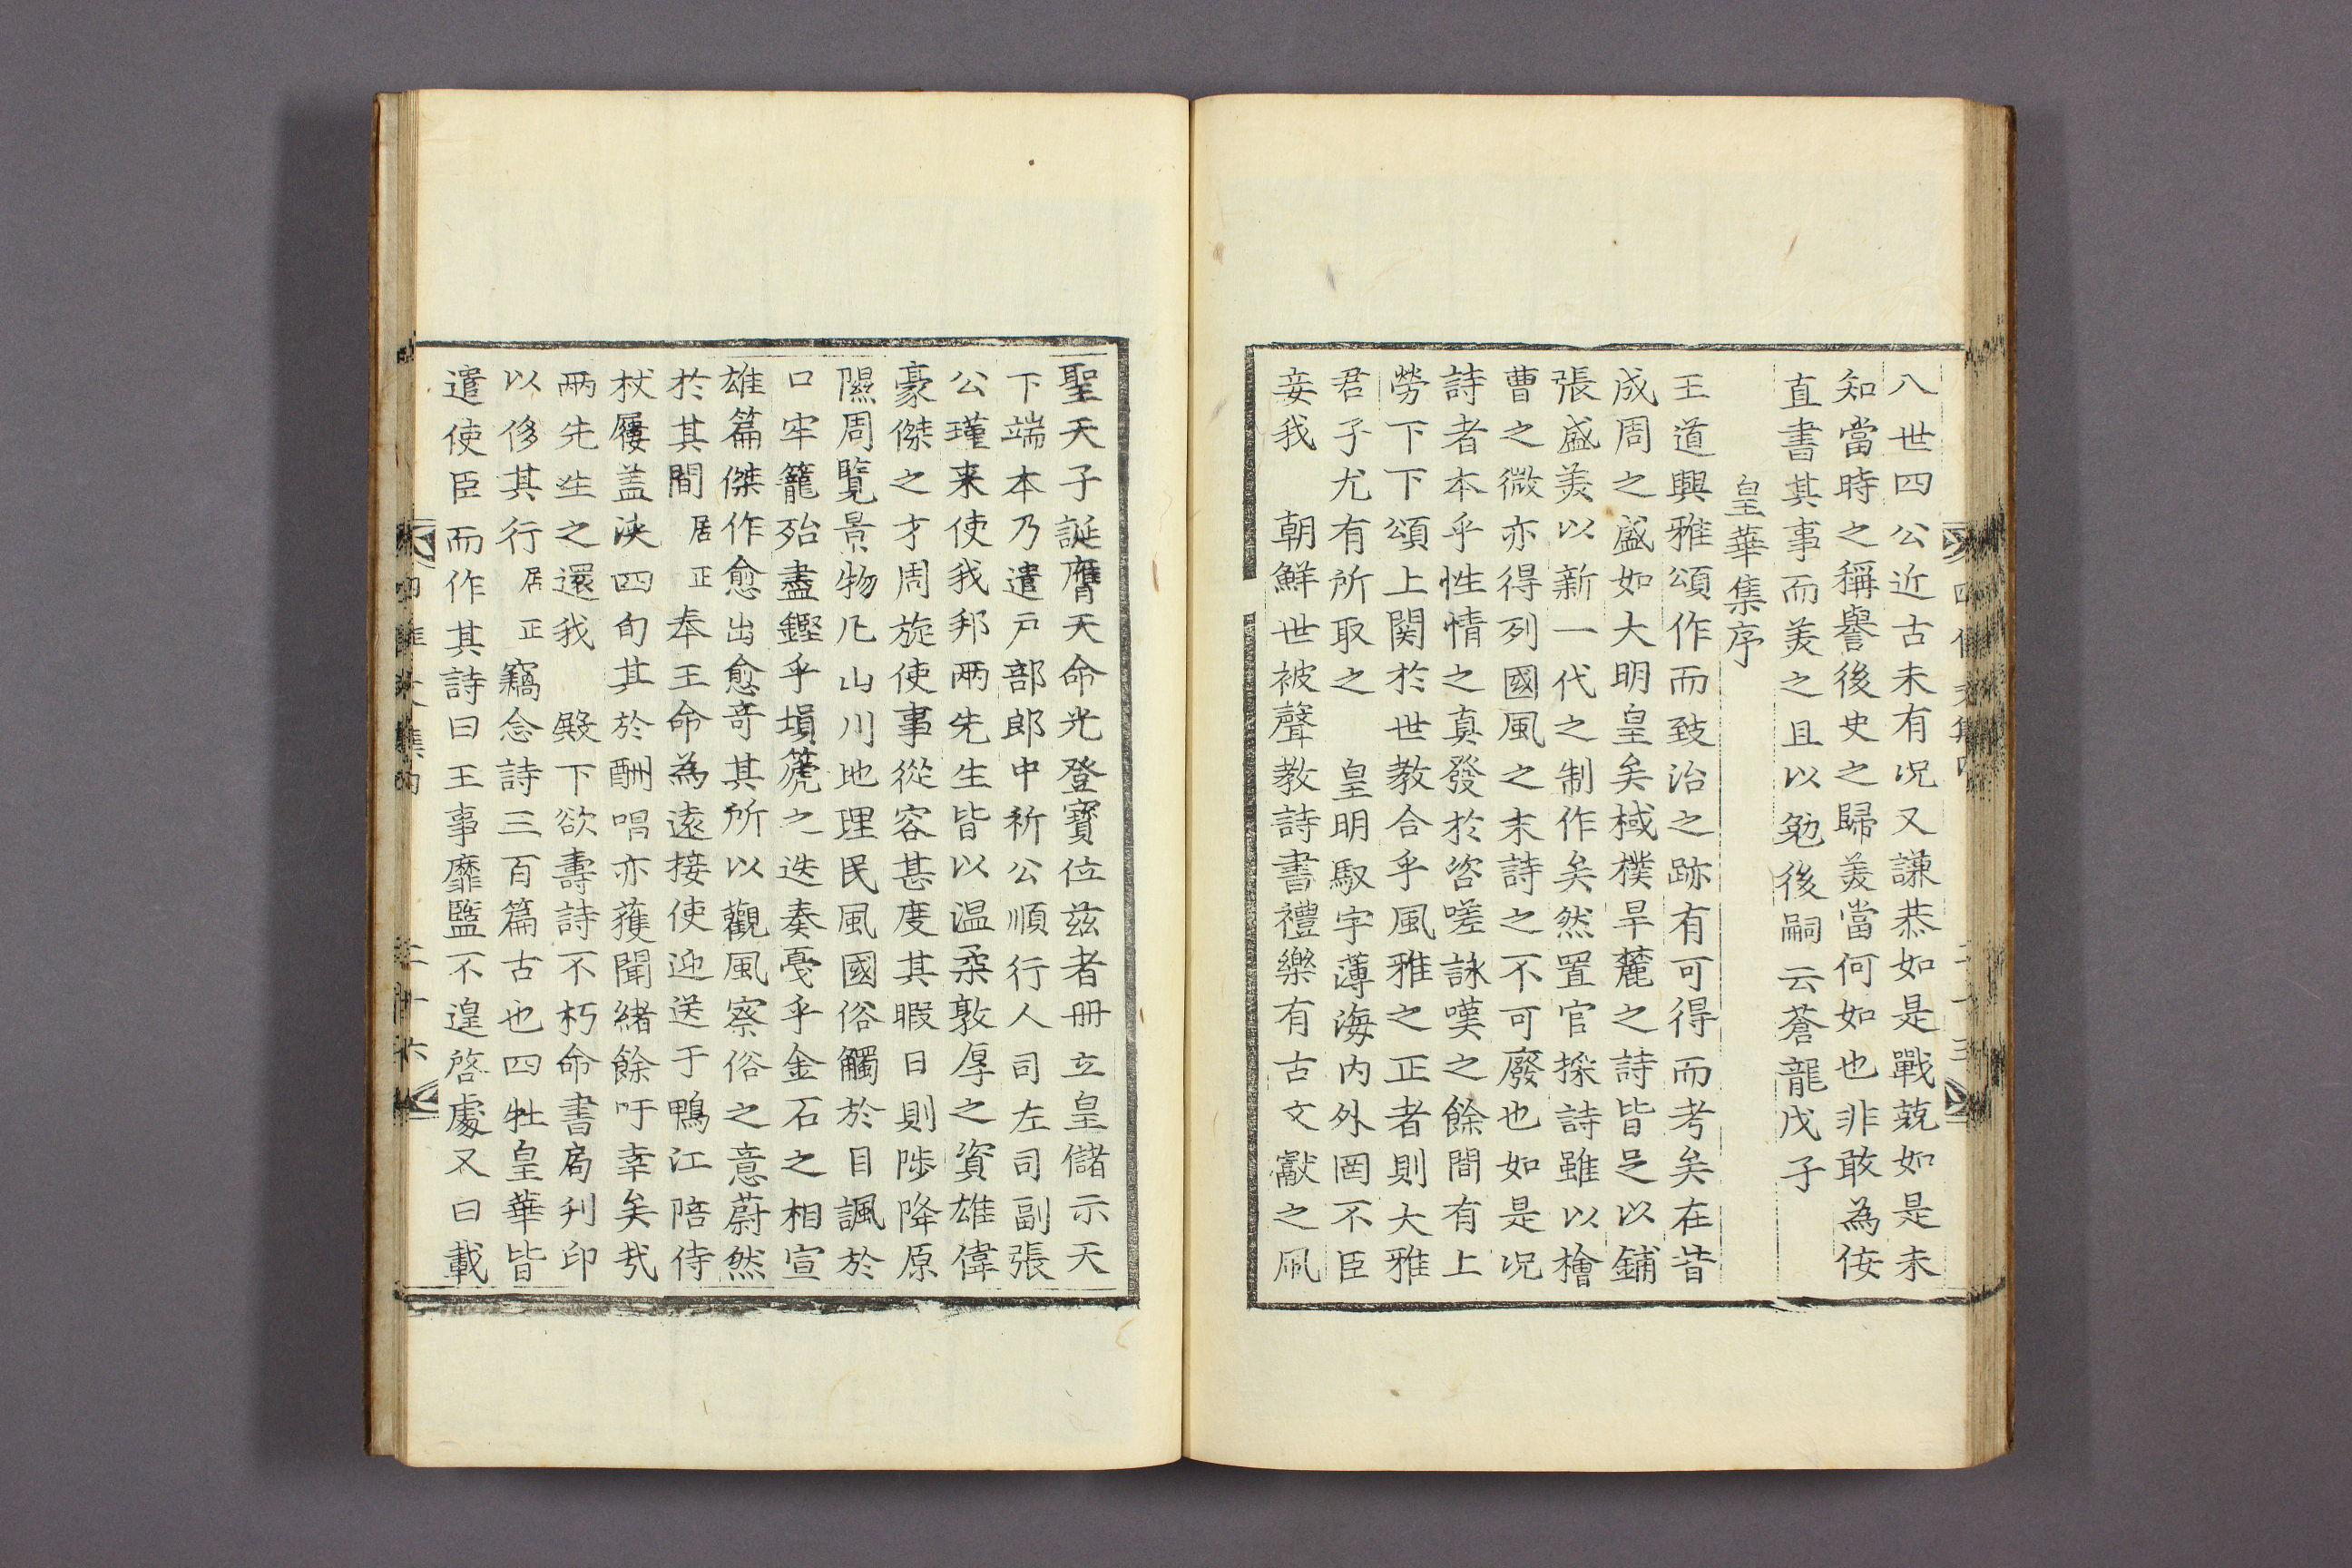 八世四公近古未有況又謙恭如是戰兢如是未
知當時之稱譽後史之歸羨當何如也非敢為侫
直書其事而羨之且以勉後嗣云蒼龍戊子
皇華集序
王道興雅頌作而致治之跡有可得而考矣在昔
成周之盛如大明皇矣棫樸旱麓之詩皆足以鋪
張盛美以新一代之制作矣然置官採詩雖以檜
曹之微亦得列國風之末詩之不可廢也如是況
詩者本乎性情之真發於咨嗟詠嘆之餘間有上
勞下下頌上関於世教合乎風雅之正者則大雅
君子尤有所取之 皇明馭宇薄海内外罔不臣
妾我 朝鮮世被聲教詩書禮樂有古文獻之風
聖天子誕膺天命光登寶位兹者冊立皇儲示天
下端本乃遣戸部郎中祈公順行人司左司副張
公瑾来使我邦两先生皆以温柔敦厚之資雄偉
豪傑之才周旋使事從容甚度其暇日則陟降原
隰周覧景物凡山川地理民風國俗觸於目諷於
口牢籠殆盡鏗乎塤篪之迭奏戞乎金石之相宣
雄篇傑作愈出愈竒其所以觀風察俗之意蔚然
於其間 居正奉王命為遠接使迎送于鴨江陪侍
杖屨盖浹四旬其於酬唱亦獲聞緒餘吁幸矣㢤
两先生之還我 殿下欲壽詩不朽命書局刋印
以侈其行 居正竊念詩三百篇古也四牡皇華皆
遣使臣而作其詩曰王事靡盬不遑啓處又曰載